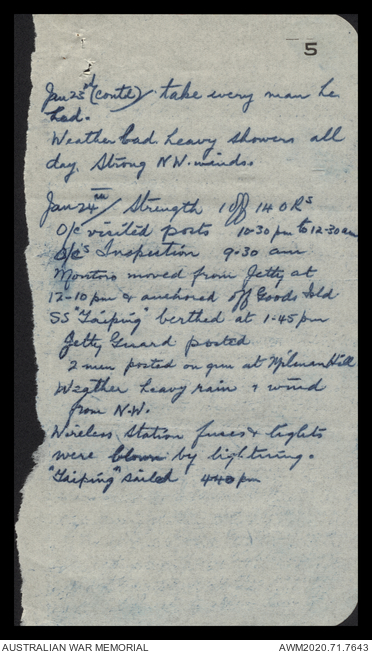 5
Jan 23rd (contd) take every man he
had.
Weather bad. heavy showers all
day. Strong N.W. winds.
Jan 24th/ Strength 1 off 14 ORs
O/C visited posts 10-30 pm to 12-30 am
O/C's Inspection 9-30 am
Montoro moved from Jetty at
12-10 pm & anchored off Goods Isld
SS "Taiping" berthed at 1-45 pm
Jetty Guard posted
2 men posted on gun at Milman Hill
Weather heavy rain & wind
from N.W.
Wireless Station fuses & lights
were blown by lightning.
"Taiping" sailed 4-40 pm
AUSTRALIAN WAR MEMORIAL
AWM2020.71.7643